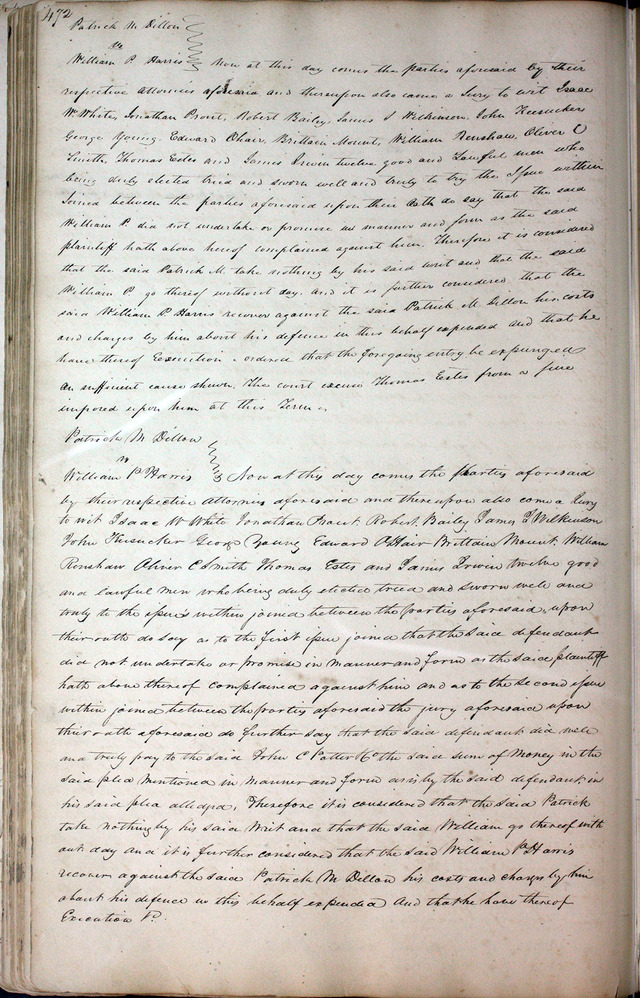 472
Patrick M Dillon
vs
William P. Harris Now at this day comes the parties aforesaid by their
respective attornies aforesaid and thereupon also came a Jury to wit Isaac
W White, Jonathan Prout, Robert Bailey, James S Wilkinson John Keesucker
George Young Edward Ohair, Brittain Mount, William Renshaw, Oliver C
Smith, Thomas Estes and James Irwin twelve good and Lawful men who
being duly elected tried and sworn well and truly to try the Issue within
Joined between the parties aforesaid upon their Oath do say that the said
William P. did not undertake or promise in manner and form as the said
plaintiff hath above hereof complained against him. Therefore it is considered
that the said Patrick M. take nothing by his said writ and that the said
William P. go thereof without day. and it is further considered that the
said William P Harris recover against the said Patrick M. Dillon his costs
and charges by him about his defence in this behalf expended and that he
have thereof Execution. ordered that the foregoing entry be expunged
On sufficient cause shewn. The court excuse Thomas Estes from a fine
imposed upon him at this Term.
Patrick M Dillon
vs
William P Harris Now at this day comes the parties aforesaid
by their respective attornies aforesaid and thereupon also come a Jury
to wit Isaac W White Jonathan Prout Robert Bailey James S Wilkinson
John Keesucker George Young Edward OHair Brittain Mount, William
Renshaw Oliver C Smith Thomas Estes and James Irwin twelve good
and lawful men who being duly elected tried and sworn well and
truly to the issues within joined between the parties aforesaid, upon
their oath do say as to the first issue joined that the said defendant
did not undertake or promise in manner and form as the said plaintiff
hath above thereof complained against him and as to the second issue
within joined between the parties aforesaid the jury aforesaid upon
their oath aforesaid do further say that the said defendant did well
and truly pay to the said John C Potter &Co the said sum of Money in the
said plea mentioned in manner and form as is by the said defendant in
his said plea alledged, Therefore it is considered that the said Patrick
take nothing by his said Writ and that the said William go thereof with
out day and it is further considered that the said William P Harris
recover against the said Patrick M Dillon his costs and charges by him
about his defence in this behalf expended and that he have thereof
Execution